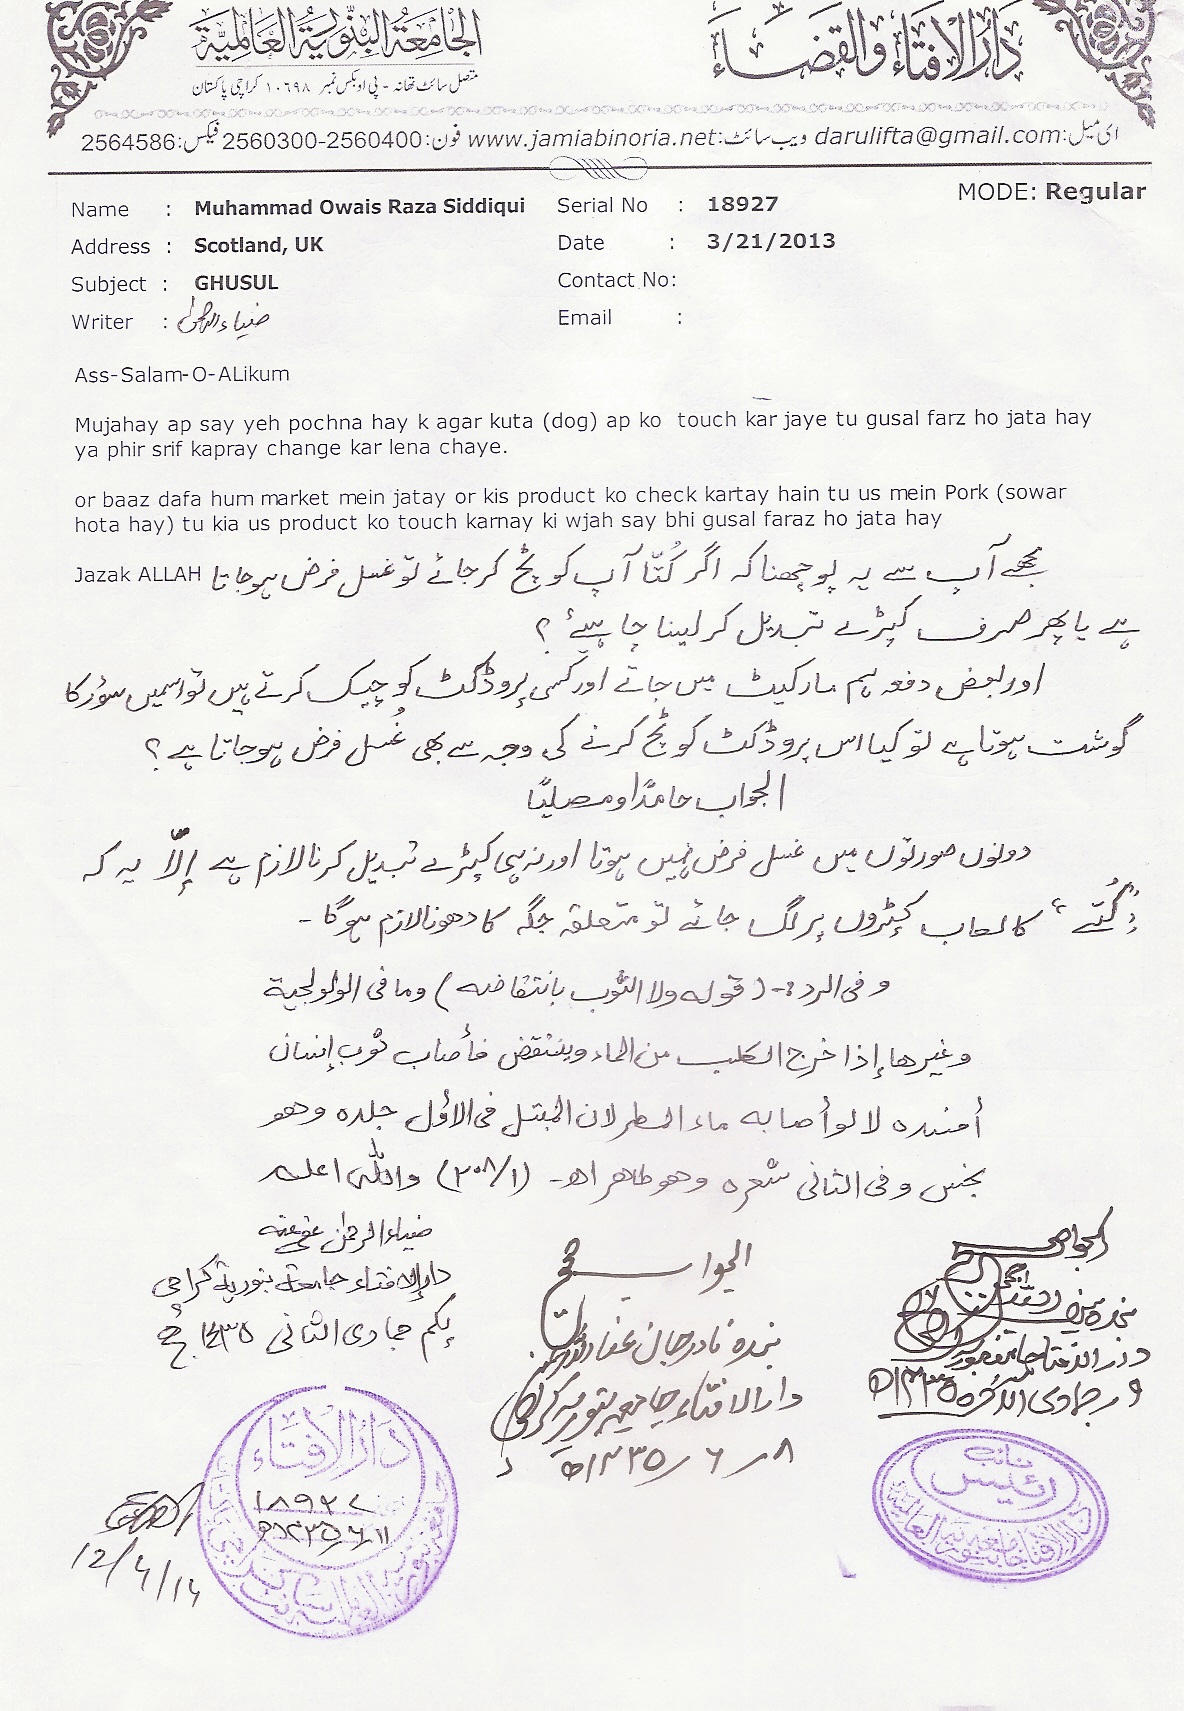 دَارُالاِفتَاء وَالقَضَاء
الجَامِعَةُ البِنّورِيَّةُ العَالَمِيَّة
متصل سائٹ تھانہ - پی او بکس نمبر ۱۰۶۹۸ کراچی پاکستان
ای میل: darulifta@gmail.com ویب سائٹ: www.jamiabinoria.net فون: 2560300-2560400 فیکس: 2564586
MODE: Regular
Name : Muhammad Owais Raza Siddiqui Serial No : 18927
Address : Scotland, UK Date : 3/21/2013
Subject : GHUSUL Contact No:
Writer : ضیاء الرحمٰن Email :
Ass-Salam-O-ALikum
Mujahay ap say yeh pochna hay k agar kuta (dog) ap ko touch kar jaye tu gusal farz ho jata hay
ya phir srif kapray change kar lena chaye.
or baaz dafa hum market mein jatay or kis product ko check kartay hain tu us mein Pork (sowar
hota hay) tu kia us product ko touch karnay ki wjah say bhi gusal faraz ho jata hay
Jazak ALLAH
مجھے آپ سے یہ پوچھنا کہ اگر کُتّا آپ کو ٹچ کر جائے تو غسل فرض ہوجاتا
ہے یا پھر صرف کپڑے تبدیل کرلینا چاہیئے ؟
اور بعض دفعہ ہم مارکیٹ میں جاتے اور کسی پروڈکٹ کو چیک کرتے ہیں تو اسمیں سؤر کا
گوشت ہوتا ہے تو کیا اس پروڈکٹ کو ٹچ کرنے کی وجہ سے بھی غُسل فرض ہوجاتا ہے ؟
الجواب حامدًا ومصلیًا
دونوں صورتوں میں غسل فرض نہیں ہوتا اور نہ ہی کپڑے تبدیل کرنا لازم ہے إلّا یہ کہ
”کُتے“ کا لعاب کپڑوں پر لگ جائے تو متعلقہ جگہ کا دھونا لازم ہوگا -
وفی الرد :- (قولہ ولا الثوب بانتفاضہ) وما فی الولولجیة
وغیرھا إذا خرج الکلب من الماء وینتفض فأصاب ثوب إنسان
أفسدہ لا لو أصابہ ماء المطر لان المبتل فی الاوّل جلدہ وھو
نجس وفی الثانی شعرہ وھو طاهر اھ- (۲۰۸/۱) واللہ اعلم
ضیاء الرحمٰن عفی عنہ
دار الافتاء جامعہ بنوریہ کراچی
یکم جمادی الثانی ۱۴۳۵ ھ
الجواب صحیح
بندہ نادر جان عفا اللہ عنہ
دار الافتاء جامعہ بنوریہ کراچی
۸ - ۶ - ۱۴۳۵ھ
الجواب صحیح
دَارُالاِفتَاء
۱۸۹۲۷
۱۱ ۶ ۱۴۳۵ھ
12/4/14
نائب
رئیس
دار الافتاء جامعہ بنوریہ العالمیہ